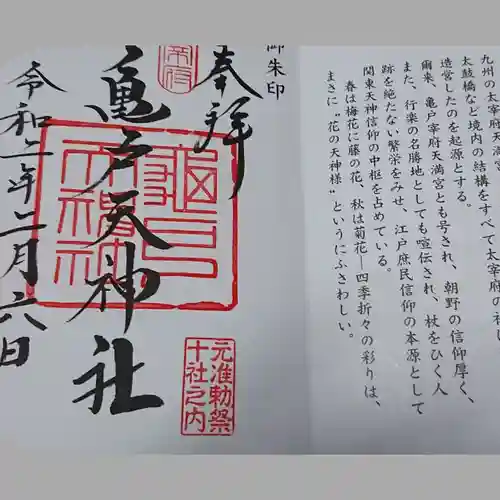 九州の太宰府天満宮
太鼓橋など境内の結構をすべて太宰府の社に
造営したのを起源とする。
爾来、亀戸宰府天満宮とも号され、朝野の信仰厚く、
また、行楽の名勝地としても喧伝され、杖をひく人
跡を絶たない繁栄をみせ、江戸庶民信仰の本源として
関東天神信仰の中枢を占めている。
春は梅花に藤の花、秋は菊花―四季折々の彩りは、
まさに“花の天神様”というにふさわしい。
御朱印
奉拝
亀戸天神社
元准勅祭
十社之内
令和二年二月六日